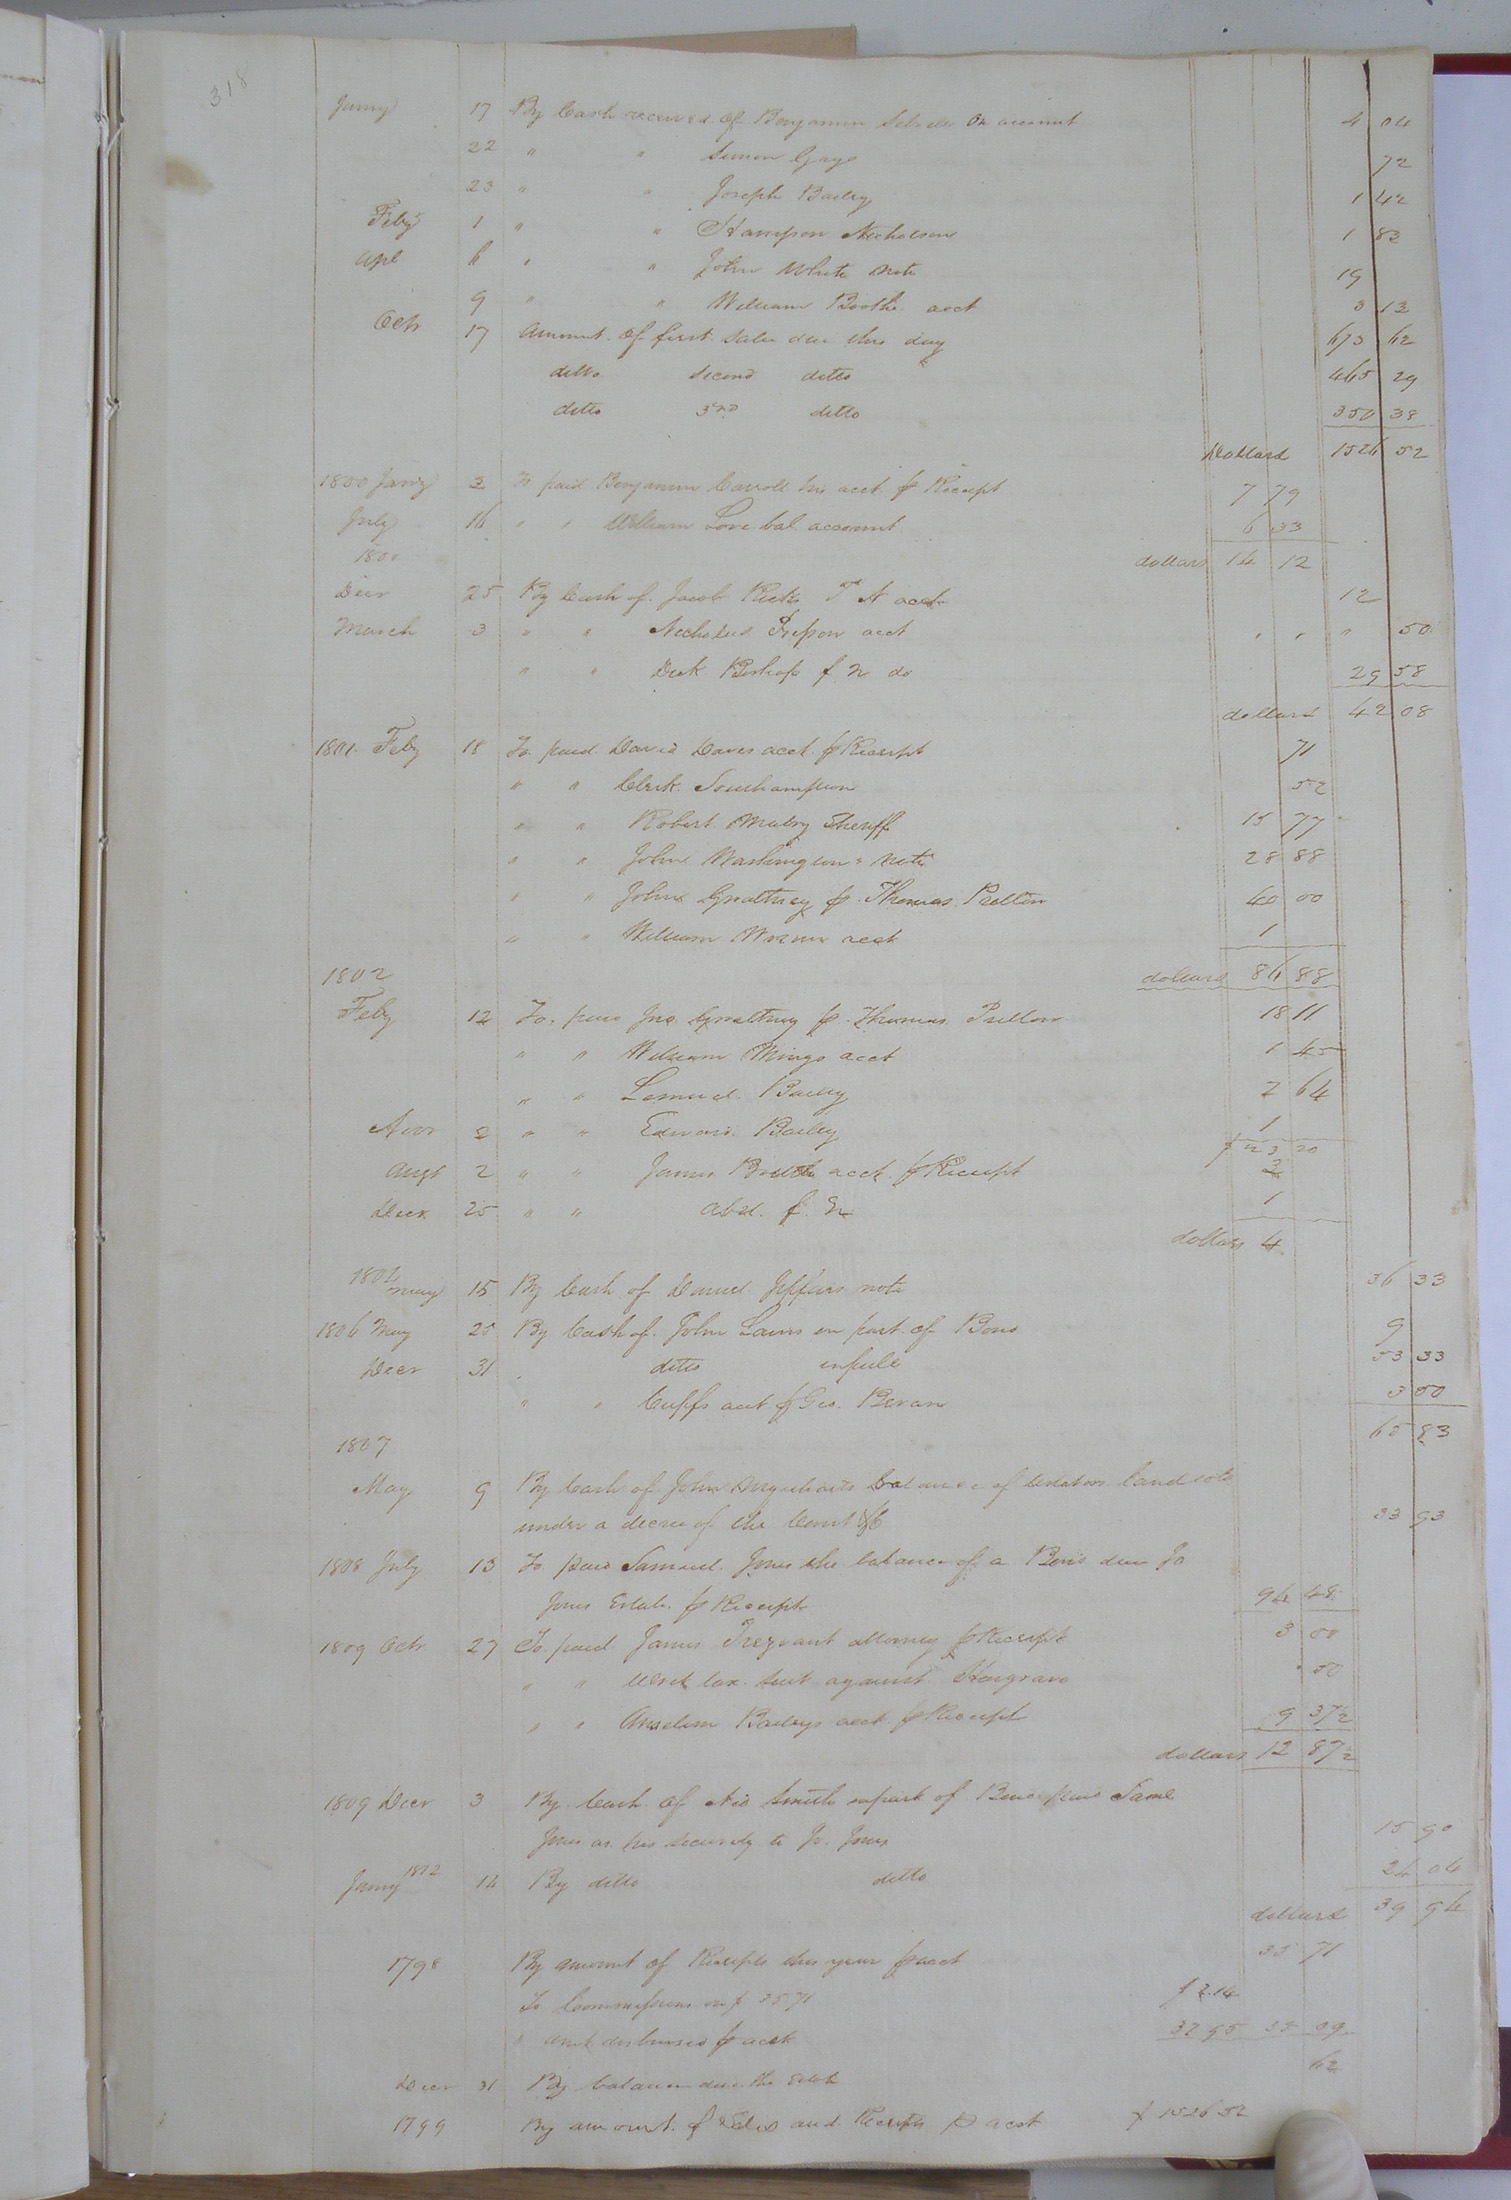 318
Jany 17 By Cash received of Benjamin on account 4 04
22 " " Simon Gray 72
23 " " Joseph Bailey 1 42
Feby 1 " " Hampson Nicholson 1 83
Apl 6 " " John White note 19
9 " " William Boothe acct 3 13
Octr 17 Amount of first Sales due this day 673 62
ditto Second ditto 465 29
ditto 3rd ditto 350 38
Dollars 1526 52
1800 Jany 3 To paid Benjamin Carroll his acct p Receipt 7 79
July 16 " " William Love bal account 6 33
1800 dollars 14 12
Decr 25 By Cash of Jacob Ricks T N acct 12
March 3 " " Nicholas acct " " " 50
" " Dick Bishop f N do 29 58
dollars 42 08
1801 Feby 18 To paid David Davis acct p Receipt 71
" " Clerk Southampton 52
" " Robert Mabry Sheriff 15 77
" " John Washingtons note 28 88
" " John Gwaltney p Thomas Pretlow 40 00
" " William acct 1
1802 dollars 86 88
Feby 12 To paid Jno Gwaltney p Thomas Pretlow 18 11
" " William acct 1 45
" " Lemuel Bailey 2 64
Novr 2 " " Edward Bailey 1
$ 23 20
Augt 2 " " James acct p Receipt 3
Decr 25 " " Abel f N 1
dollars 4
1804 May 15 By Cash of Daniel note 36 33
1806 May 25 By Cash of John in part of Bond 9
Decr 31 " ditto in full 53 33
" " Cuffs acct p Geo. Bevan 3 50
65 83
1807
May 9 By Cash of John Urquharts balance of testators land sold
under a decree of the Court &c 33 93
1808 July 13 To paid Samuel Jones the balance of a Bond due Jo
Jones Estate p Receipt 94 48
1809 Octr 27 To paid James Trezvant attorney p Receipt 3 00
" " Clerk tax suit against Hargrave 50
" " Anselm Baileys acct p Receipt 9 37½
dollars 12 87½
1809 Decr 3 By Cash of Nic Smith in part of Bond paid Saml
Jones as his security to Jo. Jones 15 90
Jany 1812 14 By ditto ditto 24 04
dollars 39 94
1798 By amount of Receipts this year p acct 35 71
To Commissions on $ 35 71 $ 2.14
" amt disbursed p acct 32 95 35 09
62
Decr 31 By balance due the Estate
1799 By amount of Sales and Receipts p acct $ 1526 52